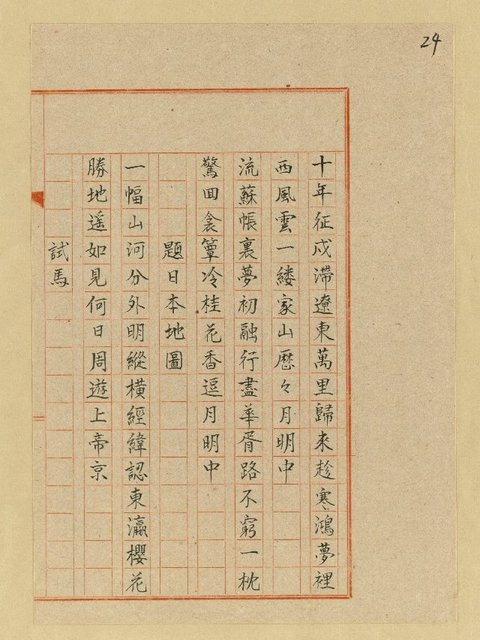 24
十年征戍滯遼東萬里歸來趁寒鴻夢裡
西風雲一縷家山歷々月明中
流蘇帳裏夢初融行盡華胥路不窮一枕
驚回衾簟冷桂花香逗月明中
題日本地圖
一幅山河分外明縱橫經緯認東瀛櫻花
勝地遥如見何日周遊上帝京
試馬